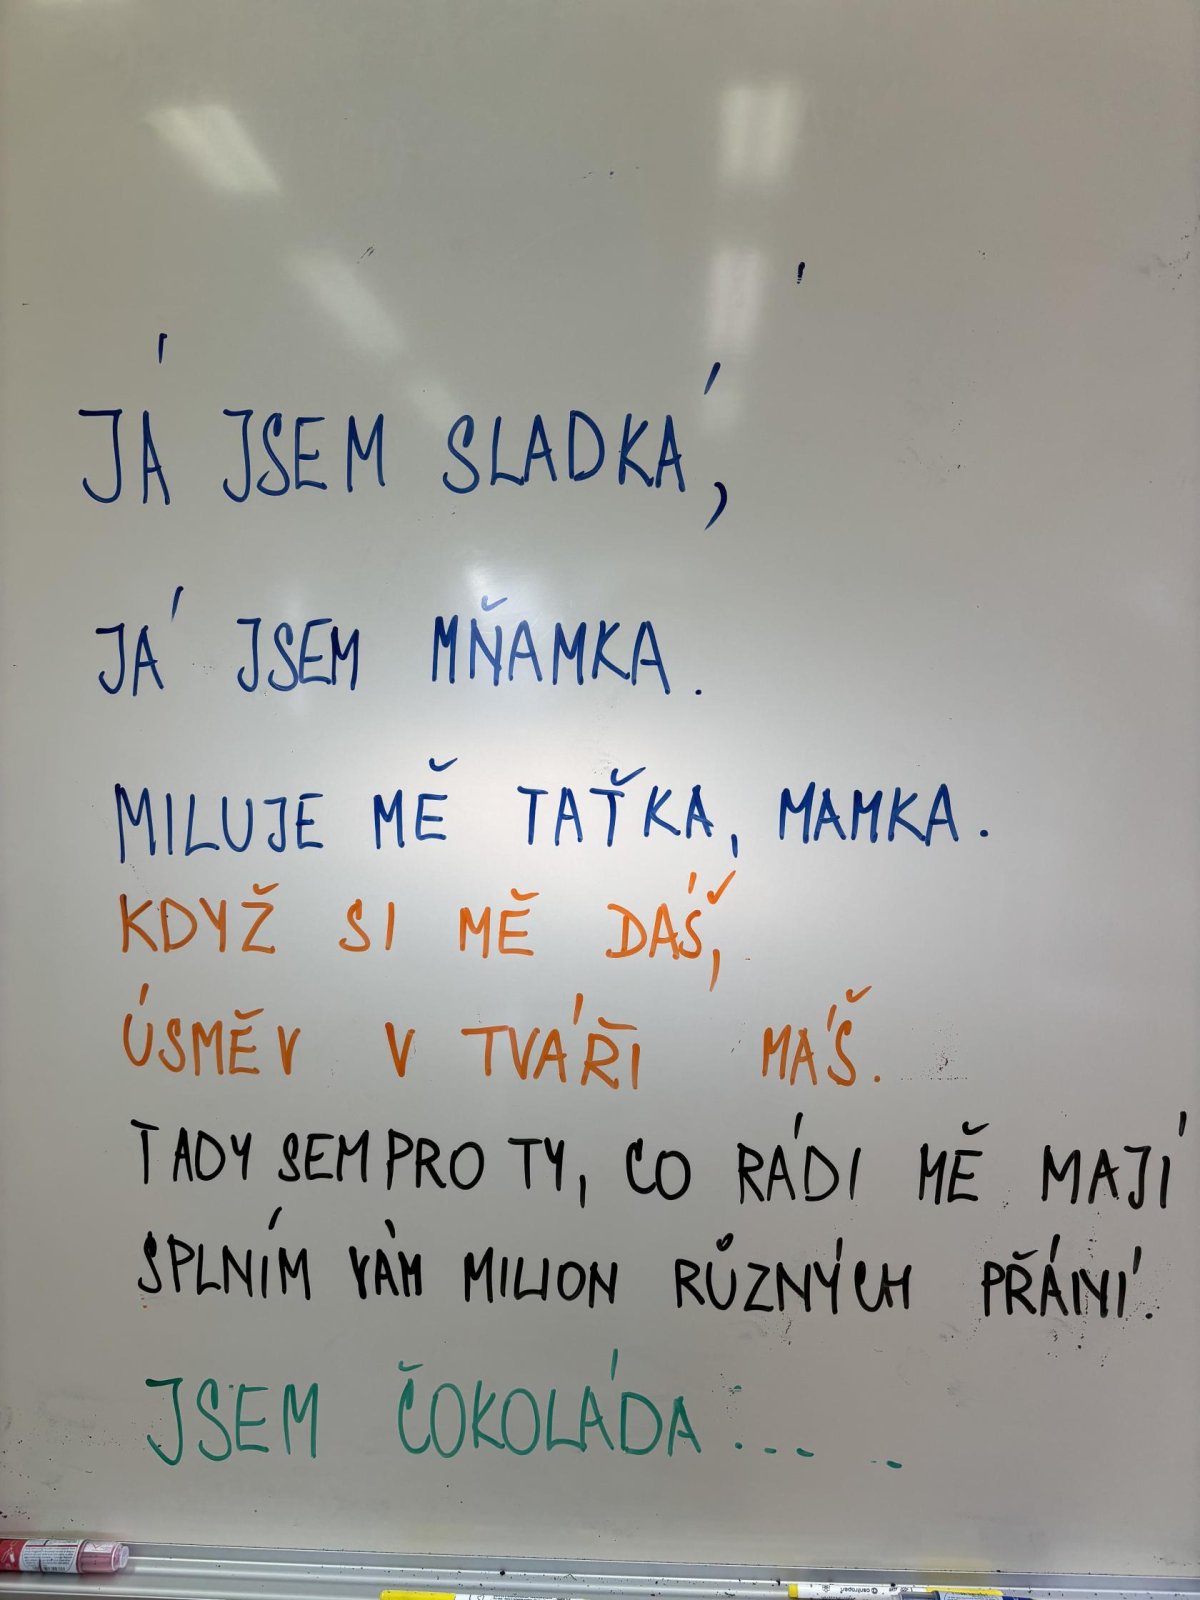 JÁ JSEM SLADKÁ,
JÁ JSEM MŇAMKA.
MILUJE MĚ TAŤKA, MAMKA.
KDYŽ SI MĚ DÁŠ,
ÚSMĚV V TVÁŘI MÁŠ.
TADY SEM PRO TY, CO RÁDI MĚ MAJÍ
SPLNÍM VÁM MILION RŮZNÝCH PŘÁNÍ.
JSEM ČOKOLÁDA....